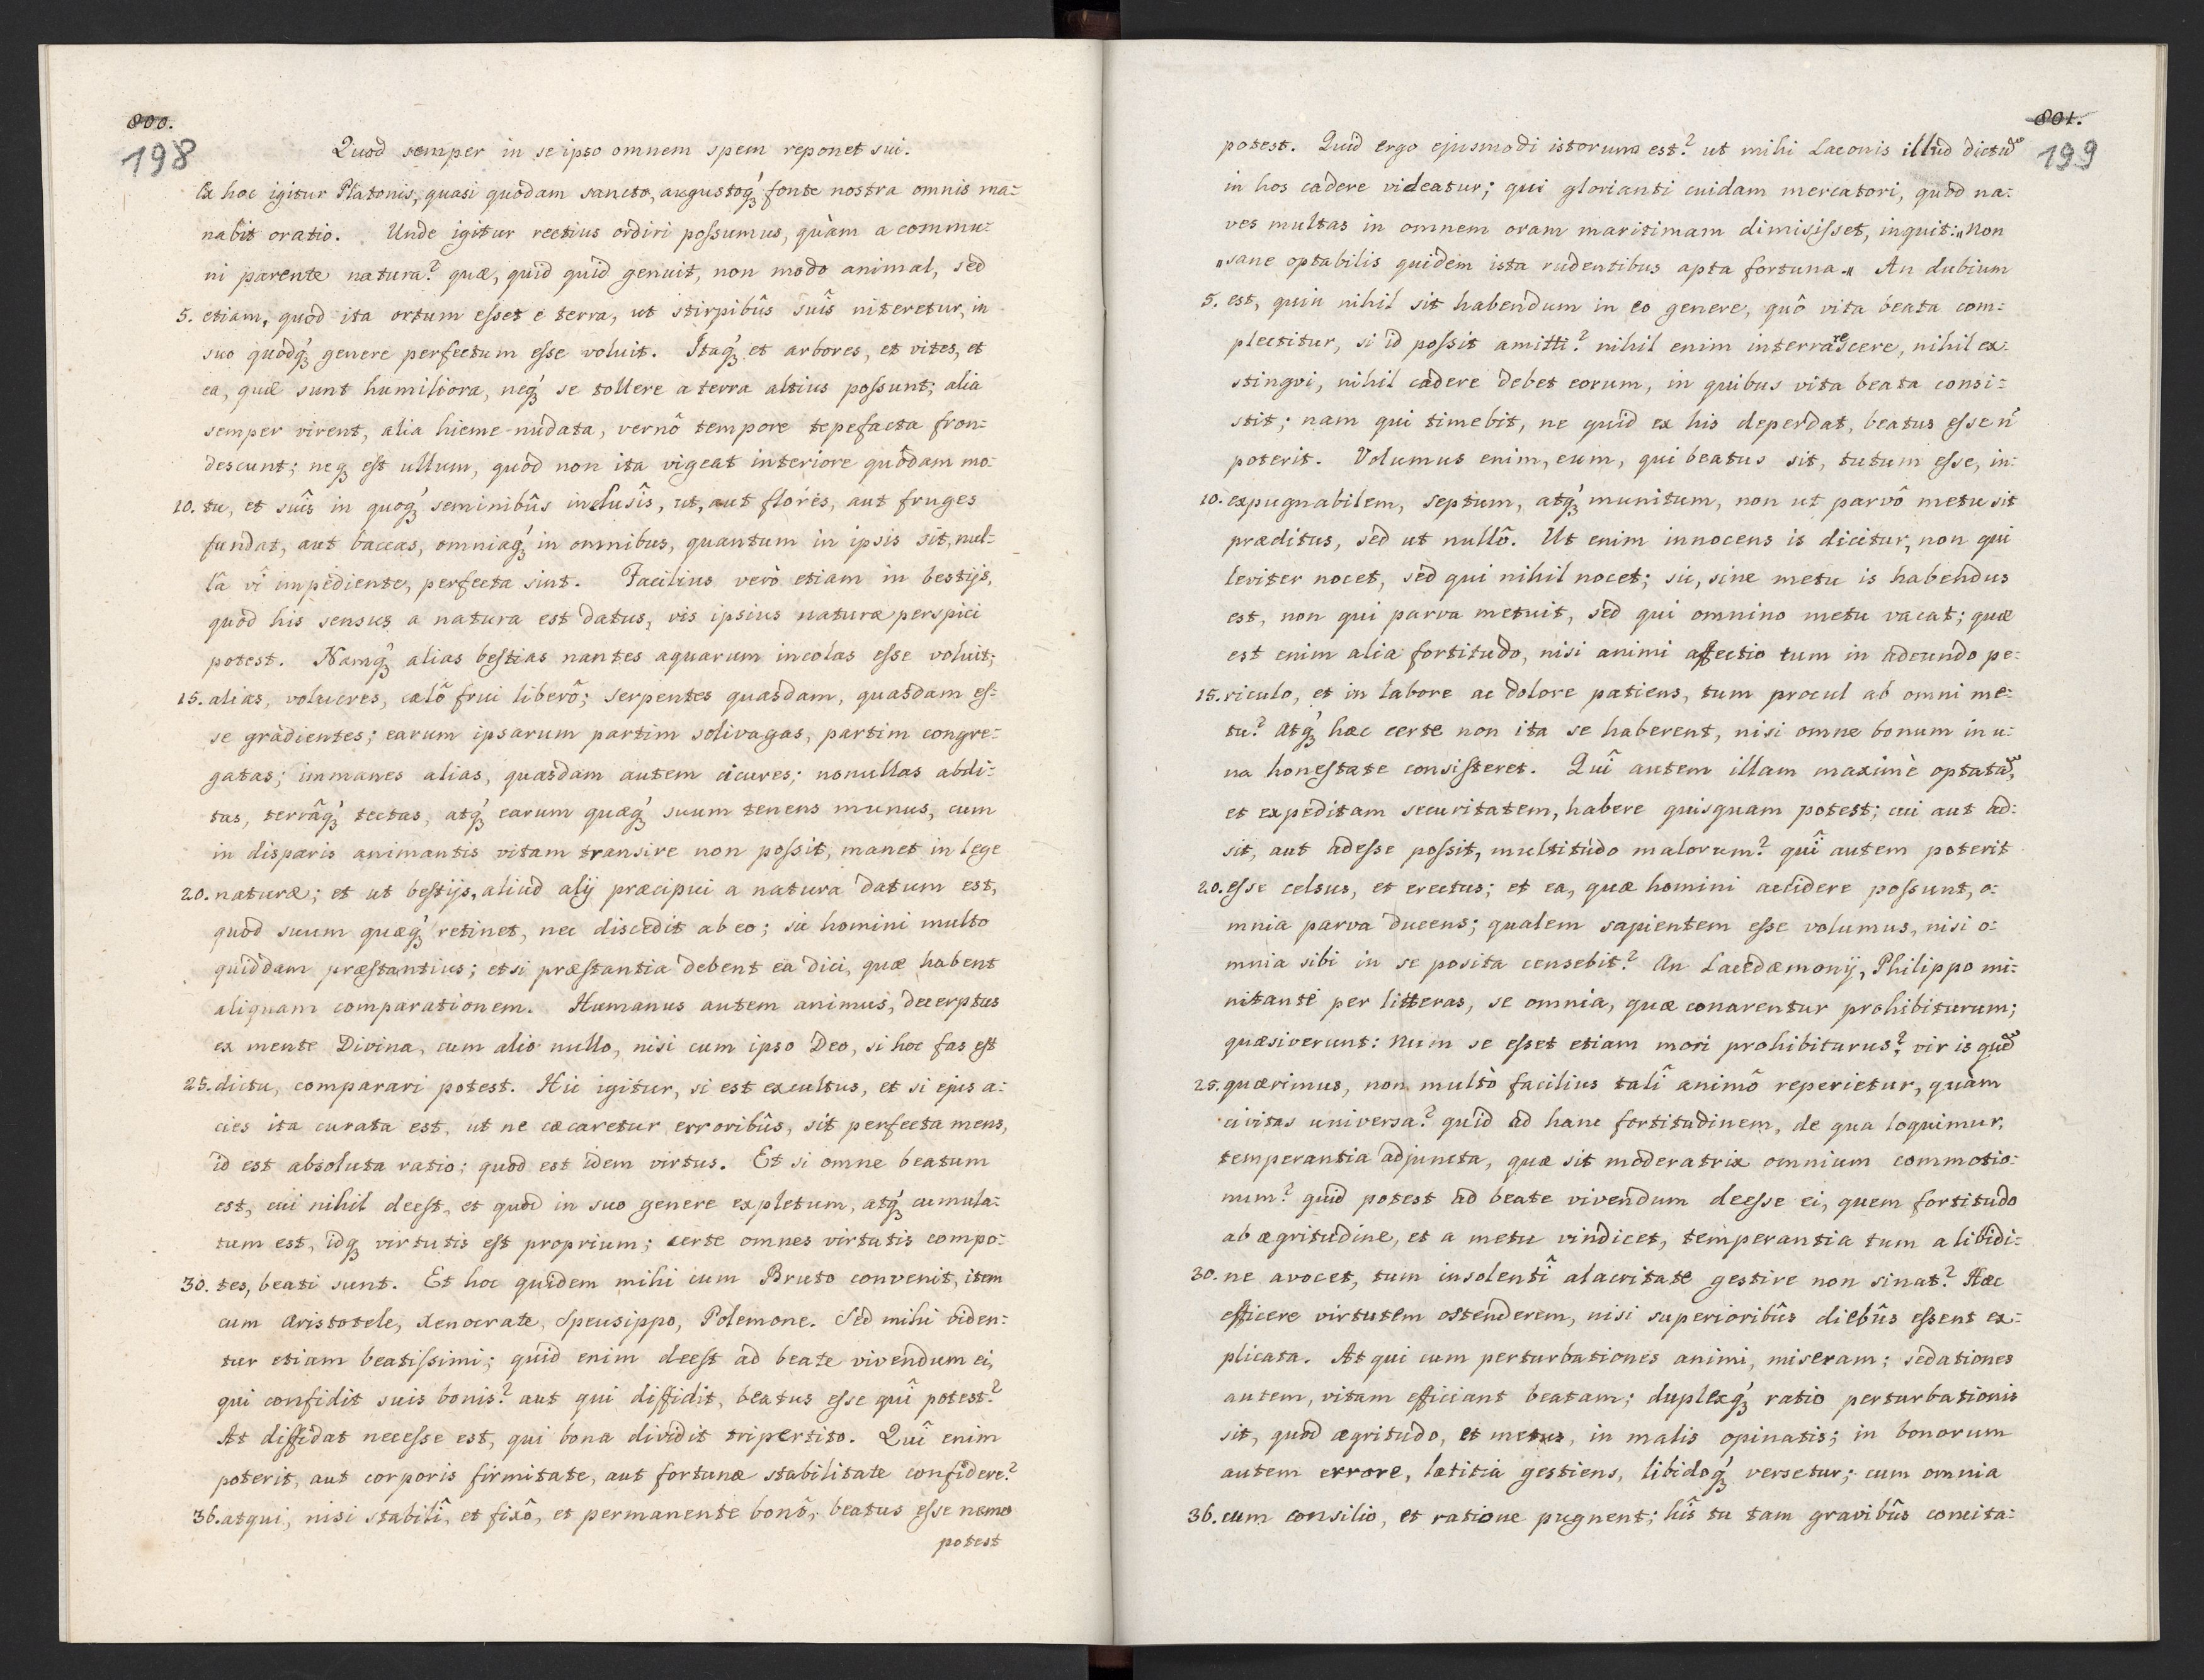 800.
198
Quod semper in se ipso omnem spem reponet sui.
Ex hoc igitur Platonis, quasi quodam sancto, augustoq́ʒ fonte nostra omnis ma=
nabit oratio. Unde igitur rectius ordiri poſsumus, quàm a commu=
ni parente natura? quæ, quid quid genuit, non modo animal, sed
5. etiam, quod ita ortum eſset e terra, ut stirpibûs suîs niteretur, in
suo quodq́ʒ genere perfectum eſse voluit. Itaq́ʒ et arbores, et vites, et
ea, quæ sunt humiliora, neq́ʒ se tollere a terra altius poſsunt; alia
semper virent, alia hieme nudata, vernô tempore tepefacta fron=
descunt; neqʒ eſt ullum, quod non ita vigeat interiore quôdam mo=
10. tu, et suîs in quoq́ʒ seminibûs inclusîs, ut, aut flores, aut fruges
fundat, aut baccas, omniaq́ʒ in omnibus, quantum in ipsis sit, nul=
lâ vî impediente, perfecta sint. Facilius verò etiam in bestijs,
quod his sensus a natura est datus, vis ipsius naturæ perspici
potest. Namq́ʒ alias beſtias nantes aquarum incolas eſse voluit;
15. alias, volucres, cælô frui liberô; serpentes quasdam, quasdam eſ=
se gradientes; earum ipsarum partim solivagas, partim congre=
gatas; immanes alias, quasdam autem cicures; nonullas abdi=
tas, terrâq́ʒ tectas, atq́ʒ earum quæq́ʒ suum tenens munus, cum
in disparis animantis vitam transire non poſsit, manet in lege
20. naturæ; et ut beſtijs, aliud alij præcipui a natura datum est,
quod suum quæq́ʒ retinet, nec discedit ab eo; sic homini multo
quiddam præſtantius; etsi præſtantia debent ea dici, quæ habent
aliquam comparationem. Humanus autem animus, decerptus
ex mente Divina, cum alio nullo, nisi cum ipso Deo, si hoc fas eſt
25. dictu, comparari potest. Hic igitur, si est excultus, et si ejus a=
cies ita curata est, ut ne cæcaretur erroribûs, sit perfecta mens,
id est absoluta ratio; quod est idem virtus. Et si omne beatum
est, cui nihil deeſt, et quod in suo genere expletum, atq́ʒ cumula=
tum est, idqʒ virtutis eſt proprium; certe omnes virtutis compo=
30. tes, beati sunt. Et hoc quidem mihi cum Bruto convenit, item
cum Aristotele, Xenocrate, Speusippo, Polemone. Sed mihi viden=
tur etiam beatiſsimi; quid enim deeſt ad beate vivendum ei,
qui confidit suis bonis? aut qui diffidit, beatus eſse quî potest?
At diffidat neceſse est, qui bona dividit tripertito. Quî enim
poterit, aut corporis firmitate, aut fortunæ stabilitate confidere?
36. atqui, nisi stabilî, et fixô, et permanente bonô, beatus eſse nemo
potest
801.
199
potest. Quid ergo ejusmodi istorum est? ut mihi Laconis illud dictũ
in hos cadere videatur; qui glorianti cuidam mercatori, quod na=
ves multas in omnem oram maritimam dimisiſset, inquit: „Non
„sane optabilis quidem ista rudentibus apta fortuna.„ An dubium
5. est, quin nihil sit habendum in eo genere, quô vita beata com=
plectitur, si id poſsit amitti? nihil enim interrarescere, nihil ex=
stingvi, nihil cadere debet eorum, in quibus vita beata consi=
stit; nam qui timebit, ne quid ex his deperdat, beatus eſse n̄
poterit. Volumus enim, eum, qui beatus sit, tutum eſse, in=
10. expugnabilem, septum, atq́ʒ munitum, non ut parvô metu sit
præditus, sed ut nullô. Ut enim innocens is dicitur, non qui
leviter nocet, sed qui nihil nocet; sic, sine metu is habendus
est, non qui parva metuit, sed qui omnino metu vacat; quæ
est enim alia fortitudo, nisi animi affectio tum in adeundo pe=
15. riculo, et in labore ac dolore patiens, tum procul ab omni me=
tu? Atq́ʒ hæc certe non ita se haberent, nisi omne bonum in u=
na honeſtate consiſteret. Quî autem illam maximè optatã,
et expeditam securitatem, habere quisquam potest; cui aut ad=
sit, aut adeſse poſsit, multitudo malorum? quî autem poterit
20. eſse celsus, et erectus; et ea, quæ homini accidere poſsunt, o=
mnia parva ducens; qualem sapientem eſse volumus, nisi o=
mnia sibi in se posita censebit? An Lacedæmonij, Philippo mi=
nitanti per litteras, se omnia, quæ conarentur prohibiturum;
quæsiverunt: Num se eſset etiam mori prohibiturus? vir is quẽ
25. quærimus, non multò facilius talî animô reperietur, quàm
civitas universa? quid ad hanc fortitudinem, de qua loquimur,
temperantia adjuncta, quæ sit moderatrix omnium commotio=
num? quid potest ad beate vivendum deeſse ei, quem fortitudo
ab ægritudine, et a metu vindicet, temperantia tum a libidi=
30. ne avocet, tum insolentî alacritate gestire non sinat? Hæc
efficere virtutem ostenderem, nisi superioribûs diebûs eſsent ex=
plicata. At qui cum perturbationes animi, miseram; sedationes
autem, vitam efficiant beatam; duplexq́ʒ ratio perturbationis
sit, quod ægritudo, et metus, in malis opinatis; in bonorum
autem errore, lætitia gestiens, libidoq́ʒ versetur; cum omnia
36. cum consilio, et ratione pugnent; hîs tu tam gravibûs concita=